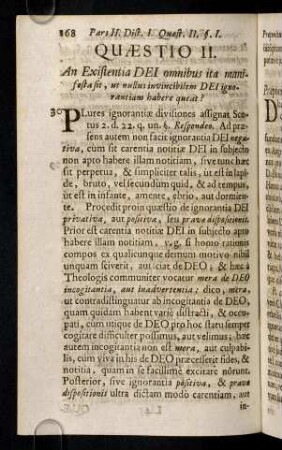 168 Pars II. Dist. I. Quæst. II. §. I.
QUÆSTIO II.
An Existentia DEI omnibus ita mani-
festa sit, ut nullus invincibilem DEI igno-
rantiam habere queat?
30 PLures ignorantiæ divisiones assignat Sco-
tus 2. d. 22. q. un. §. Respondeo. Ad præ-
sens autem non facit ignorantia DEI nega-
tiva, cum sit carentia notitiæ DEI in subjecto
non apto habere illam notitiam, sive tunc hæc
sit perpetua, & simpliciter talis, ut est in lapi-
de, bruto, vel secundum quid, & ad tempus,
ut est in infante, amente, ebrio, aut dormien-
te. Procedit proin quæstio de ignorantia DEI
privativa, aut positiva, seu pravæ dispositionis.
Prior est carentia notitiæ DEI in subjecto apto
habere illam notitiam, v. g. si homo rationis
compos ex qualicunque demum motivo nihil
unquam sciverit, aut sciat de DEO; & hæc à
Theologis communiter vocatur mera de DEO
incogitantia, aut inadvertentia: dico, mera,
ut contradistinguatur ab incogitantia de DEO,
quam quidam habent variè distracti, & occu-
pati, cum utique de DEO pro hoc statu semper
cogitare difficulter possimus, aut velimus; hæc
autem incogitantia non est mera, aut culpabi-
lis, cum viva in his de DEO præcesserit fides, &
notitia, quam in se facillimè excitare nôrunt.
Posterior, sive ignorantia positiva, & pravæ
dispositionis ultra dictam modo carentiam, aut
in-